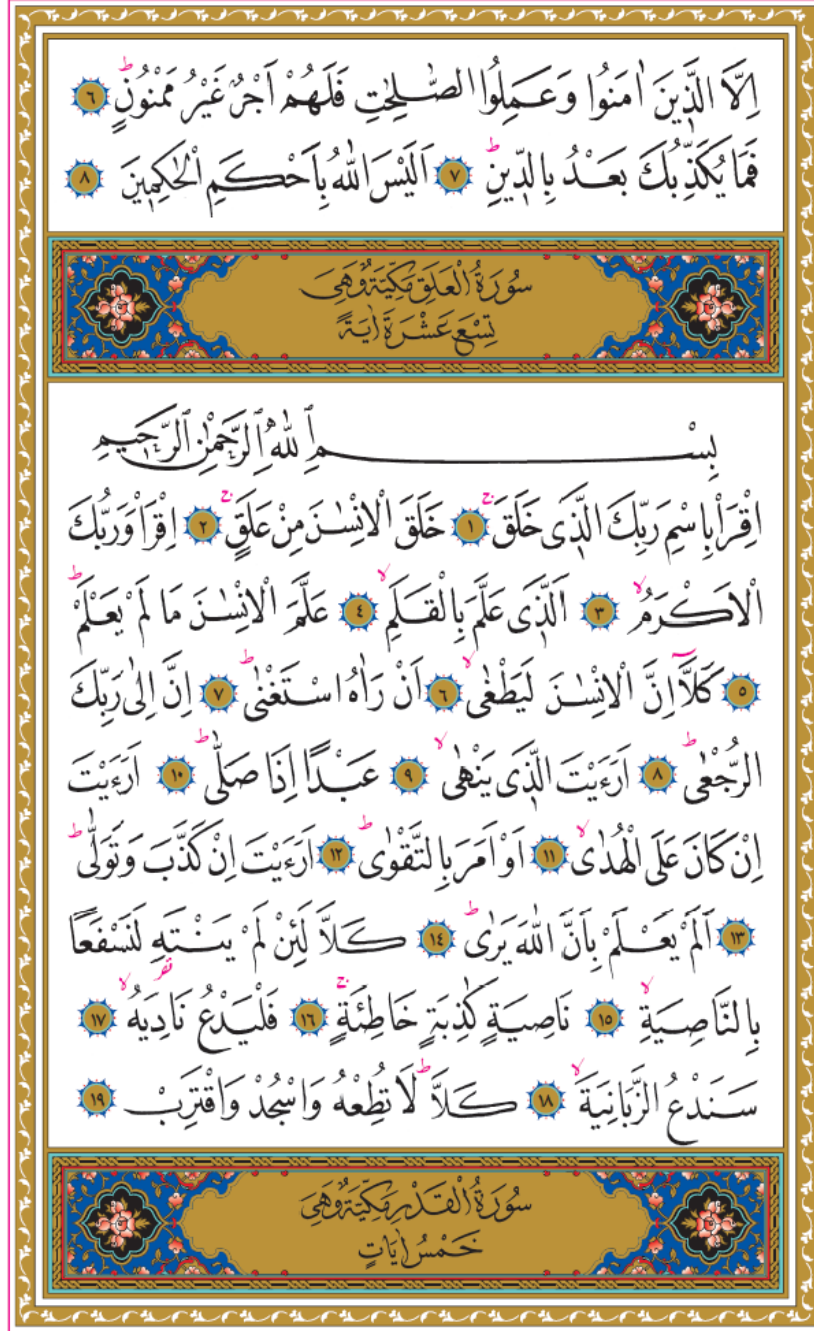 اِلَّا الَّذ۪ينَ اٰمَنُوا وَعَمِلُوا الصَّالِحَاتِ فَلَهُمْ اَجْرٌ غَيْرُ مَمْنُونٍۜ ٦
فَمَا يُكَذِّبُكَ بَعْدُ بِالدّ۪ينِۜ ٧ اَلَيْسَ اللّٰهُ بِاَحْكَمِ الْحَاكِم۪ينَ ٨
سُورَةُ الْعَلَقِ مَكِّيَّةٌ وَهِيَ
تِسْعَ عَشْرَةَ اٰيَةً
بِسْمِ اللّٰهِ الرَّحْمٰنِ الرَّح۪يمِ
اِقْرَأْ بِاسْمِ رَبِّكَ الَّذ۪ي خَلَقَۚ ١ خَلَقَ الْاِنْسٰنَ مِنْ عَلَقٍۚ ٢ اِقْرَأْ وَرَبُّكَ
الْاَكْرَمُۙ ٣ اَلَّذ۪ي عَلَّمَ بِالْقَلَمِۙ ٤ عَلَّمَ الْاِنْسٰنَ مَا لَمْ يَعْلَمْۜ
٥ كَلَّٓا اِنَّ الْاِنْسٰنَ لَيَطْغٰىۙ ٦ اَنْ رَاٰهُ اسْتَغْنٰىۜ ٧ اِنَّ اِلٰى رَبِّكَ
الرُّجْعٰىۜ ٨ اَرَءَيْتَ الَّذ۪ي يَنْهٰىۙ ٩ عَبْدًا اِذَا صَلّٰىۜ ١٠ اَرَءَيْتَ
اِنْ كَانَ عَلَى الْهُدٰىۙ ١١ اَوْ اَمَرَ بِالتَّقْوٰىۜ ١٢ اَرَءَيْتَ اِنْ كَذَّبَ وَتَوَلّٰىۜ
١٣ اَلَمْ يَعْلَمْ بِاَنَّ اللّٰهَ يَرٰىۜ ١٤ كَلَّا لَئِنْ لَمْ يَنْتَهِ لَنَسْفَعًا
بِالنَّاصِيَةِۙ ١٥ نَاصِيَةٍ كٰذِبَةٍ خَاطِئَةٍۚ ١٦ فَلْيَدْعُ نَادِيَهُۙ ١٧
سَنَدْعُ الزَّبَانِيَةَۙ ١٨ كَلَّاۜ لَا تُطِعْهُ وَاسْجُدْ وَاقْتَرِبْ ١٩
سُورَةُ الْقَدْرِ مَكِّيَّةٌ وَهِيَ
خَمْسُ اٰيَاتٍ